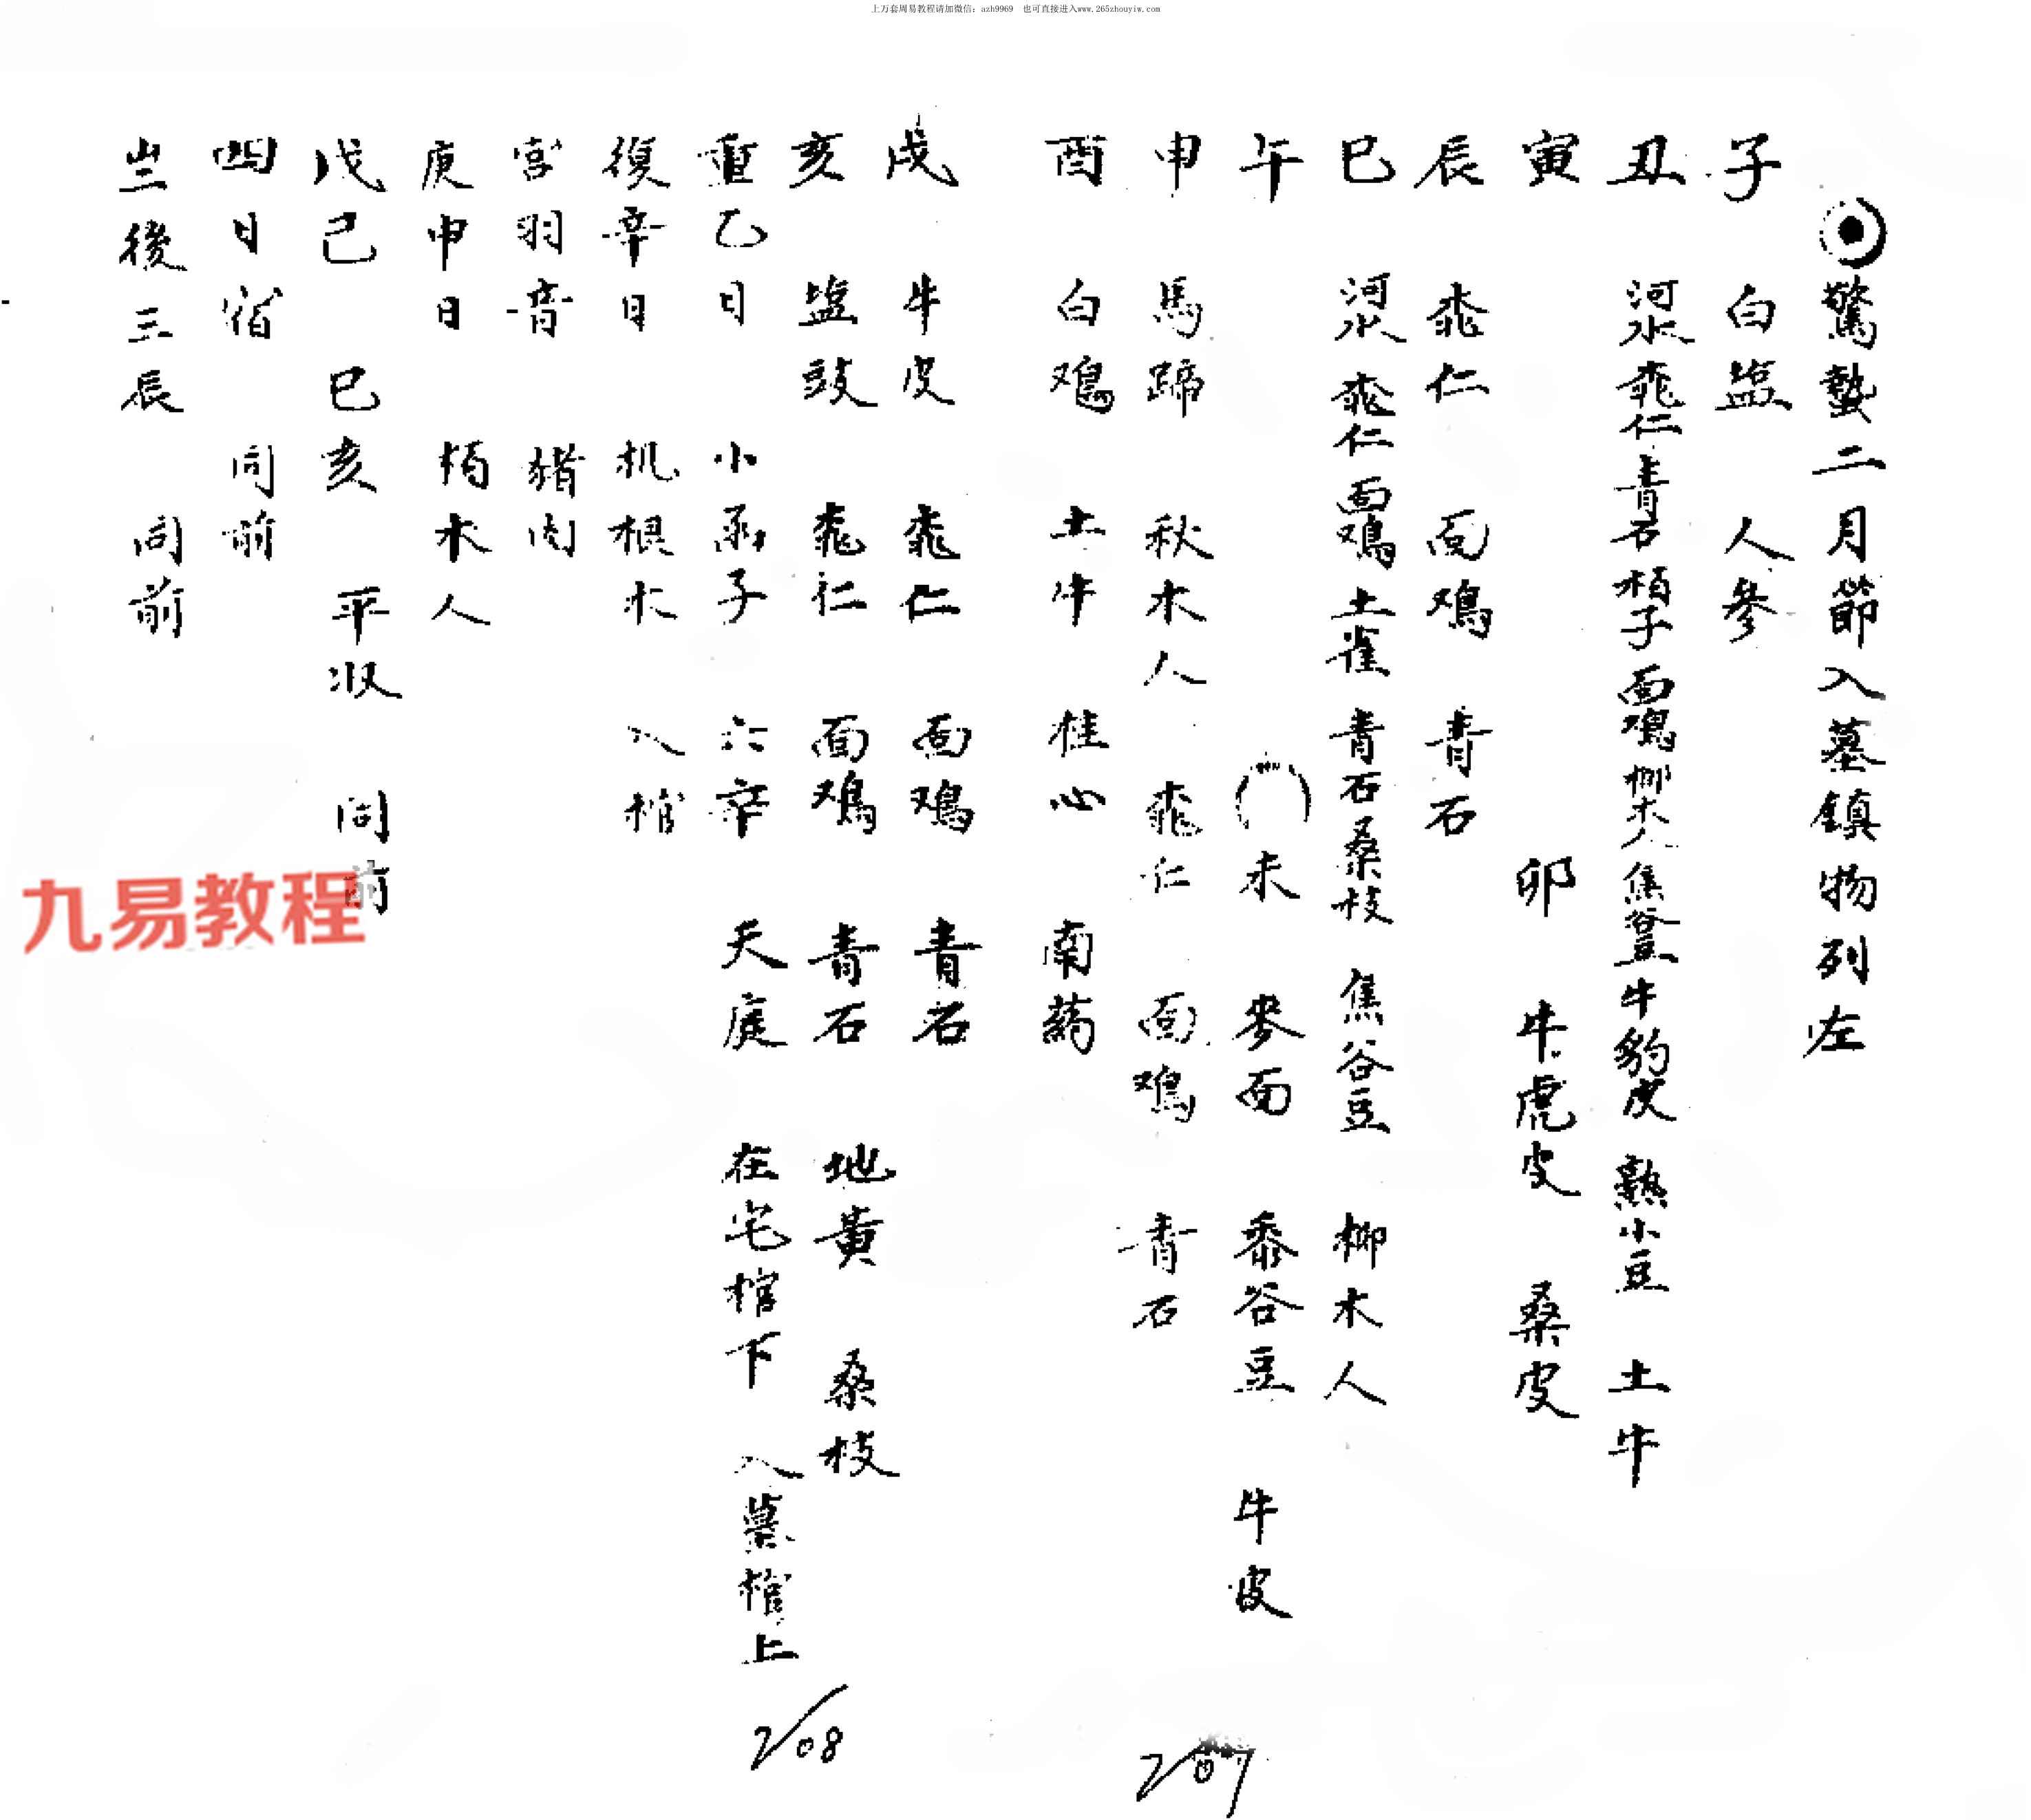 上万套周易教程请加微信：azh9969 也可直接进入www.265zhouyiw.com
驚蟄二月節入墓鎮物列左
子 白盐 人參
丑 河水 桃仁 青石 栢子 面鸡 柳木人 焦谷豆 牛豹皮 熟小豆 土牛
寅 卯 牛虎皮 桑皮
辰 桃仁 面鸡 青石
巳 河水 桃仁 面鸡 土雀 青石 桑枝 焦谷豆 柳木人
午 未 麥面 黍谷豆 牛皮
申 馬蹄 秋木人 桃仁 面鸡 青石
酉 白鸡 土牛 桂心 南药
戌 牛皮 桃仁 面鸡 青石
亥 盐豉 桃仁 面鸡 青石 地黄 桑枝
重乙日 小函子 六辛 天庭 在宅棺下 入墓棺上
復辛日 机根木 入棺
宫羽音 猪肉
庚申日 栢木人
戊己 巳亥 平収 同前
四日宿 同前
後三辰 同前
207
208
九易教程